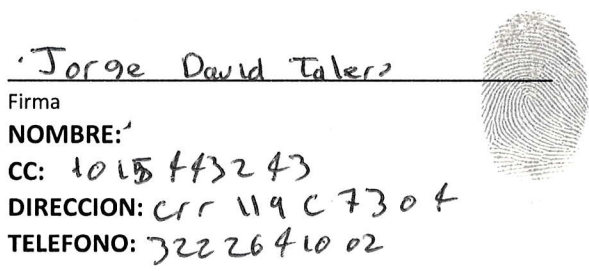 Jorge David Talero
Firma
NOMBRE:
CC: 1015443243
DIRECCION: crr 119 c 73 04
TELEFONO: 322 264 10 02